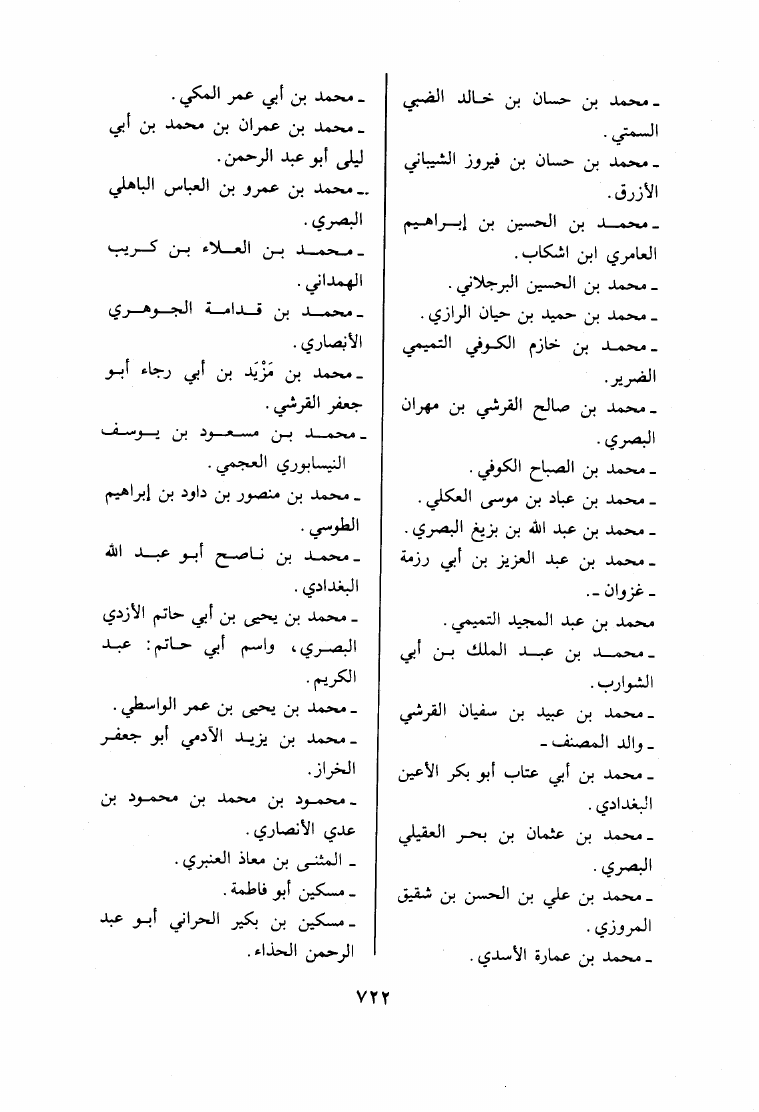 ـ محمد بن حسان بن خالد الضبي
السمتي.
ـ محمد بن حسان بن فيروز الشيباني
الأزرق.
ـ محمد بن الحسين بن إبراهيم
العامري ابن اشكاب.
ـ محمد بن الحسين البرجلاني.
ـ محمد بن حميد بن حيان الرازي.
ـ محمد بن خازم الكوفي التميمي
الضرير.
ـ محمد بن صالح القرشي بن مهران
البصري.
ـ محمد بن الصباح الكوفي.
ـ محمد بن عباد بن موسى العكلي.
ـ محمد بن عبد الله بن بزيغ البصري.
ـ محمد بن عبد العزيز بن أبي رزمة
ـ غزوان ـ.
محمد بن عبد المجيد التميمي.
ـ محمد بن عبد الملك بن أبي
الشوارب.
ـ محمد بن عبيد بن سفيان القرشي
ـ والد المصنف ـ
ـ محمد بن أبي عتاب أبو بكر الأعين
البغدادي.
ـ محمد بن عثمان بن بحر العقيلي
البصري.
ـ محمد بن علي بن الحسن بن شقيق
المروزي.
ـ محمد بن عمارة الأسدي.
ـ محمد بن أبي عمر المكي.
ـ محمد بن عمران بن محمد بن أبي
ليلى أبو عبد الرحمن.
ـ محمد بن عمرو بن العباس الباهلي
البصري.
ـ محمد بن العلاء بن كريب
الهمداني.
ـ محمد بن قدامة الجوهري
الأنصاري.
ـ محمد بن مَزْيَد بن أبي رجاء أبو
جعفر القرشي.
ـ محمد بن مسعود بن يوسف
النيسابوري العجمي.
ـ محمد بن منصور بن داود بن إبراهيم
الطوسي.
ـ محمد بن ناصح أبو عبد الله
البغدادي.
ـ محمد بن يحيى بن أبي حاتم الأزدي
البصري، واسم أبي حاتم: عبد
الكريم.
ـ محمد بن يحيى بن عمر الواسطي.
ـ محمد بن يزيد الآدمي أبو جعفر
الخراز.
ـ محمود بن محمد بن محمود بن
عدي الأنصاري.
ـ المثنى بن معاذ العنبري.
ـ مسكين أبو فاطمة.
ـ مسكين بن بكير الحراني أبو عبد
الرحمن الحذاء.
٧٢٢